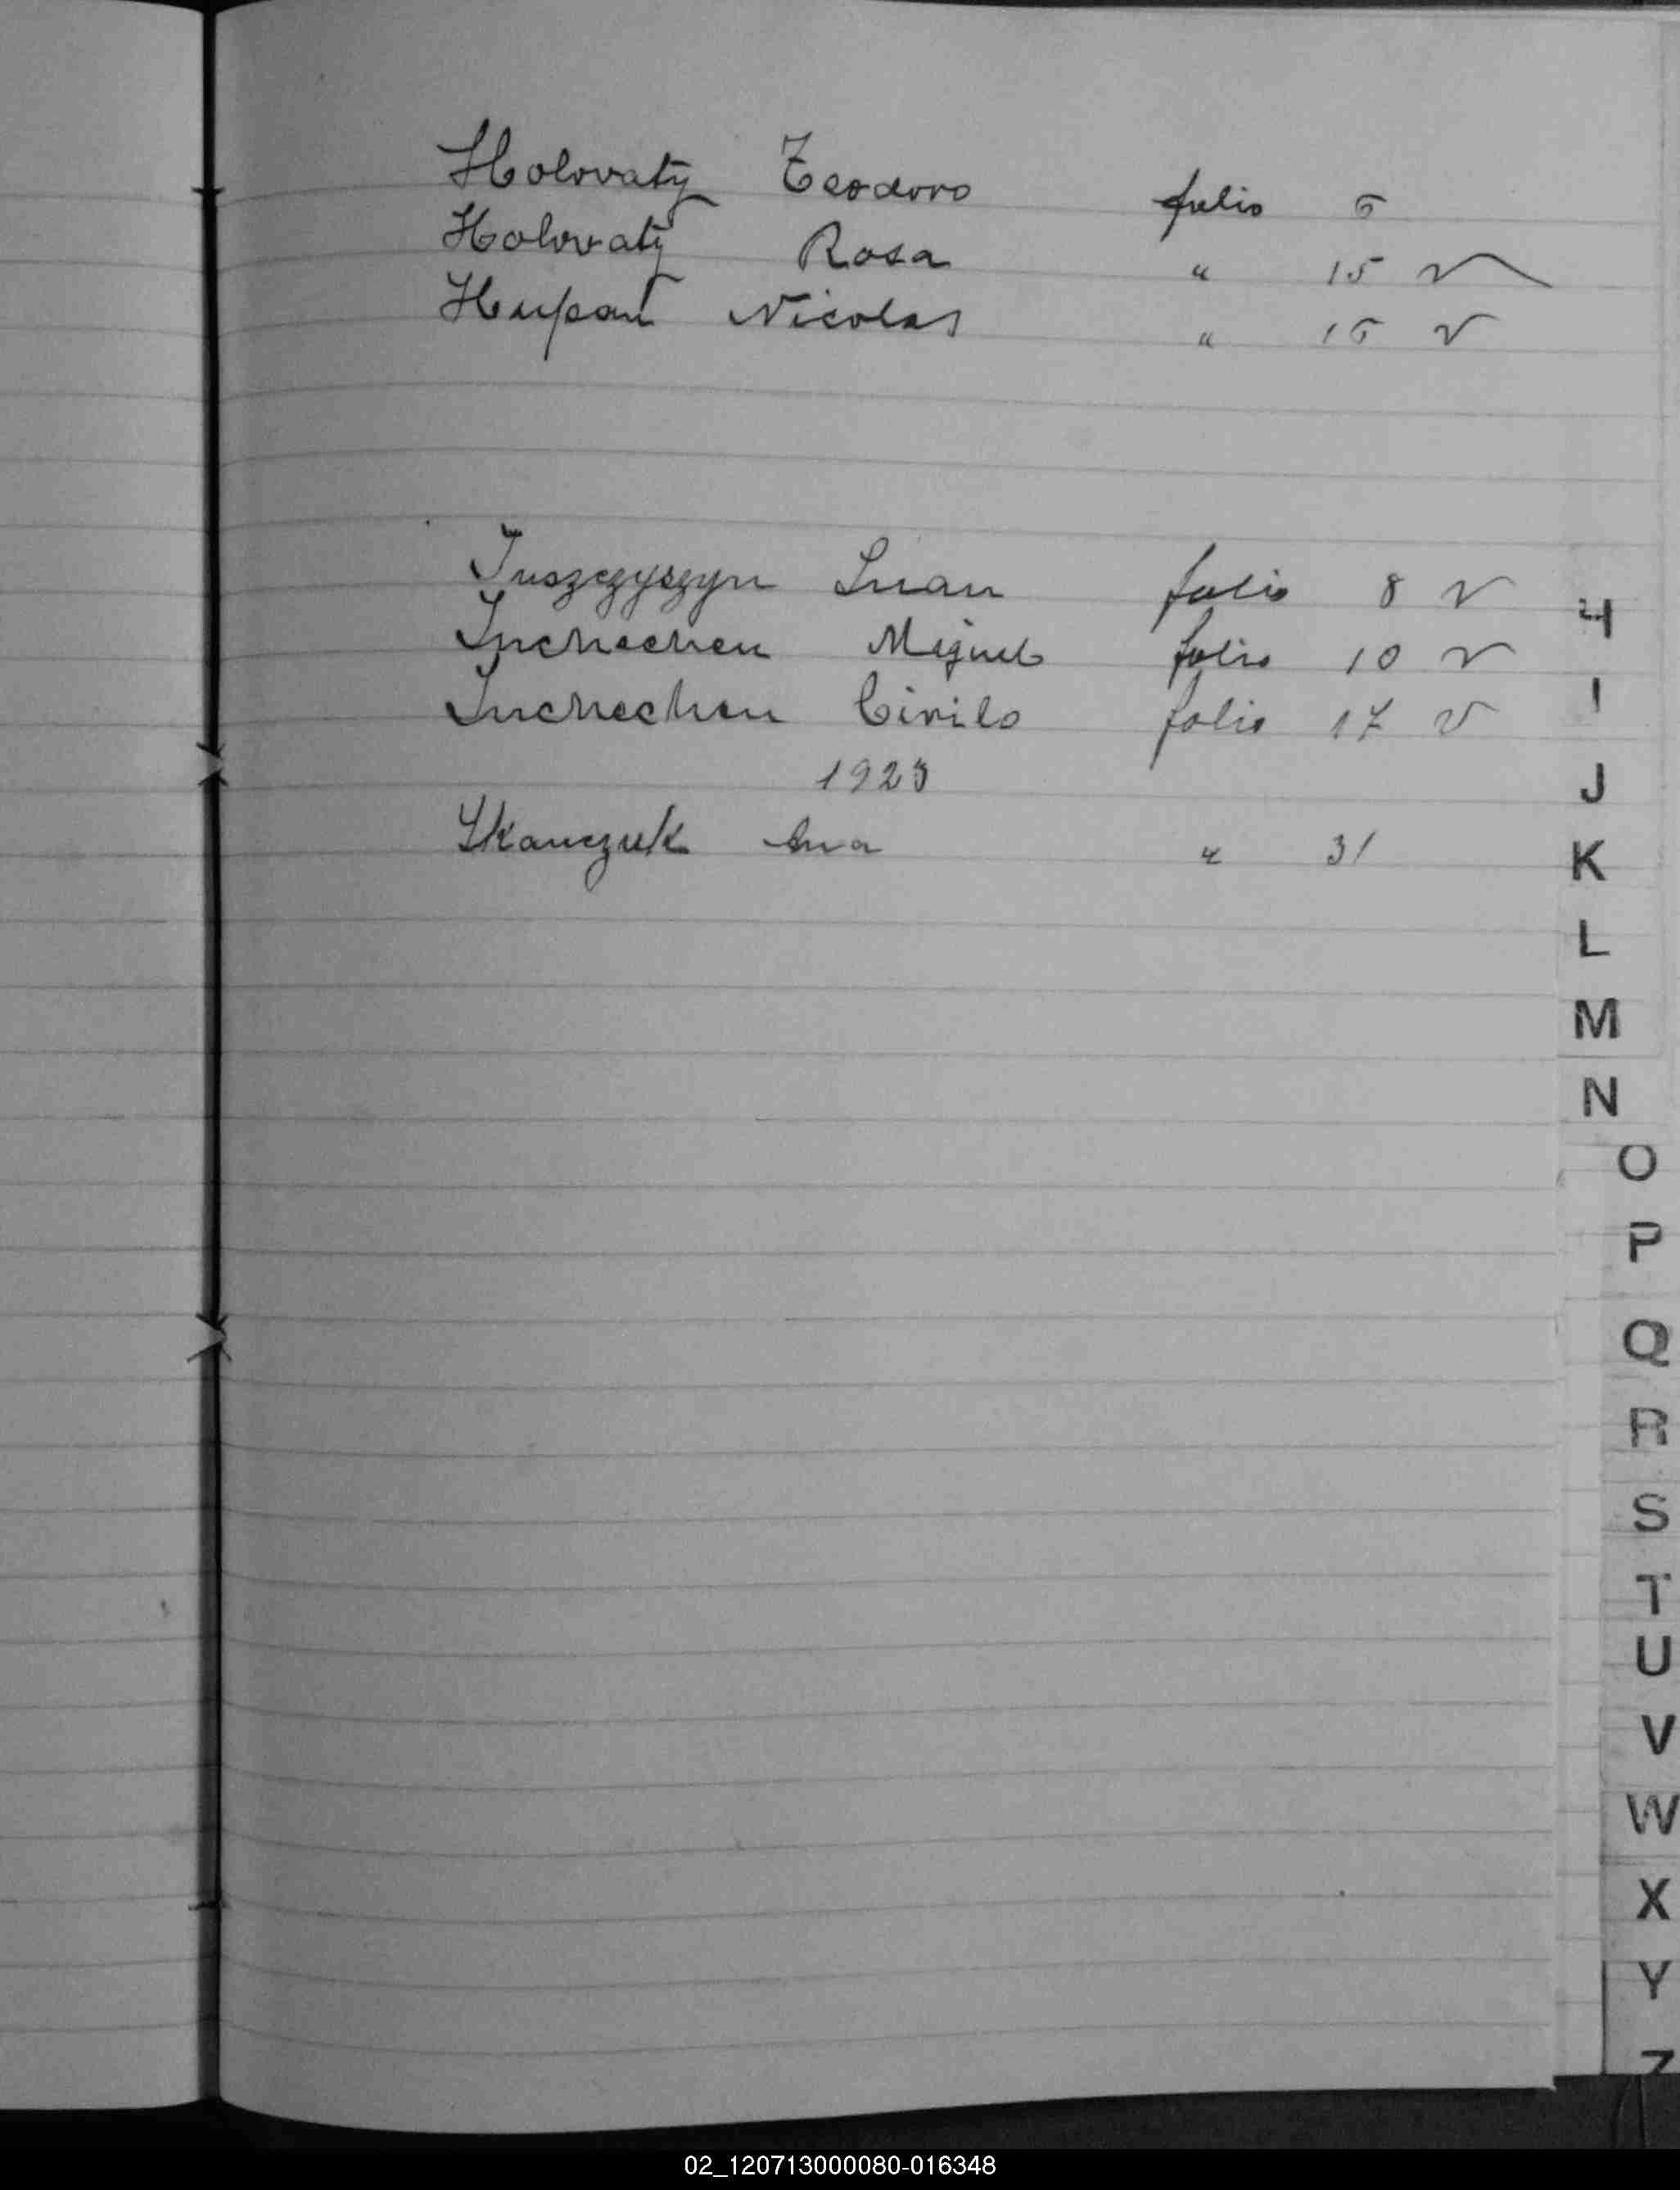 Holovatÿ Teodoro folio 6
Holovatÿ Rosa " 15 v
Hupan Nicolas " 16 v
Juszczyszyn Juan folio 8 v
Inchechen Miguel folio 10 v
Inchechen Cirilo folio 17 v
1923
Ikanczuk Ana " 31
H
I
J
K
L
M
N
O
P
Q
R
S
T
U
V
W
X
Y
Z
02_120713000080-016348